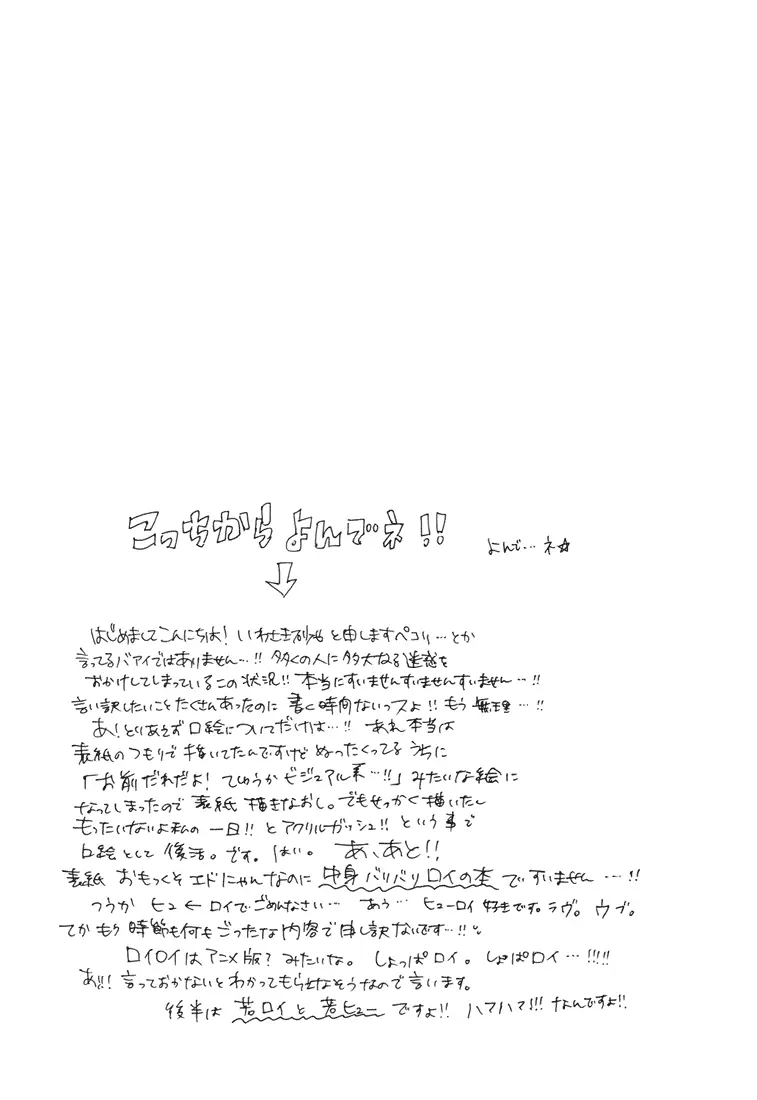 こっちからよんでネ!!
よんで…ネ☆
↓
はじめましてこんにちは! いわせき と申しますペコリ…とか
言ってるバアイではありません…!! 多くの人に多大なる迷惑を
おかけしてしまっているこの状況!! 本当にすいませんすいませんすいません…!!
言い訳したいことたくさんあったのに 書く時間ないっスよ!! もう 無理…!!
あ! とりあえず口絵についてだけは…!! あれ本当は
表紙のつもりで描いてたんですけどぬったくってるうちに
「お前だれだよ! てゆうかビジュアル系…!!」みたいな絵に
なってしまったので 表紙 描きなおし。でもせっかく描いたし
もったいないよ私の 一日!! とアクリルガッシュ!! という事で
口絵として 復活。です。はい。 あ、あと!!
表紙 おもっくそエドにゃんなのに 中身バリバリロイの本 ですいません…!!
つうか ヒュ ← ロイでごめんなさい… あう… ヒューロイ 好きです。ラヴ。ウブ。
てかもう 時節も何もごったな内容で申し訳ないです…!!
ロイロイはアニメ版? みたいな。 しょっぱロイ。しょぱロイ…!!!!
あ!! 言っておかないとわかってもらえなそうなので言います。
後半は 若ロイと若ヒュー ですよ!! ハアハア!!! なんですよ!!